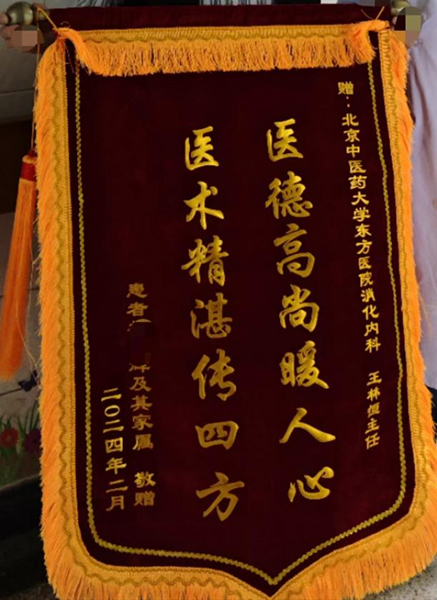 赠：北京中医药大学东方医院消化内科 王林恒主任
医德高尚暖人心
医术精湛传四方
患者 及其家属 敬赠
二〇二四年二月